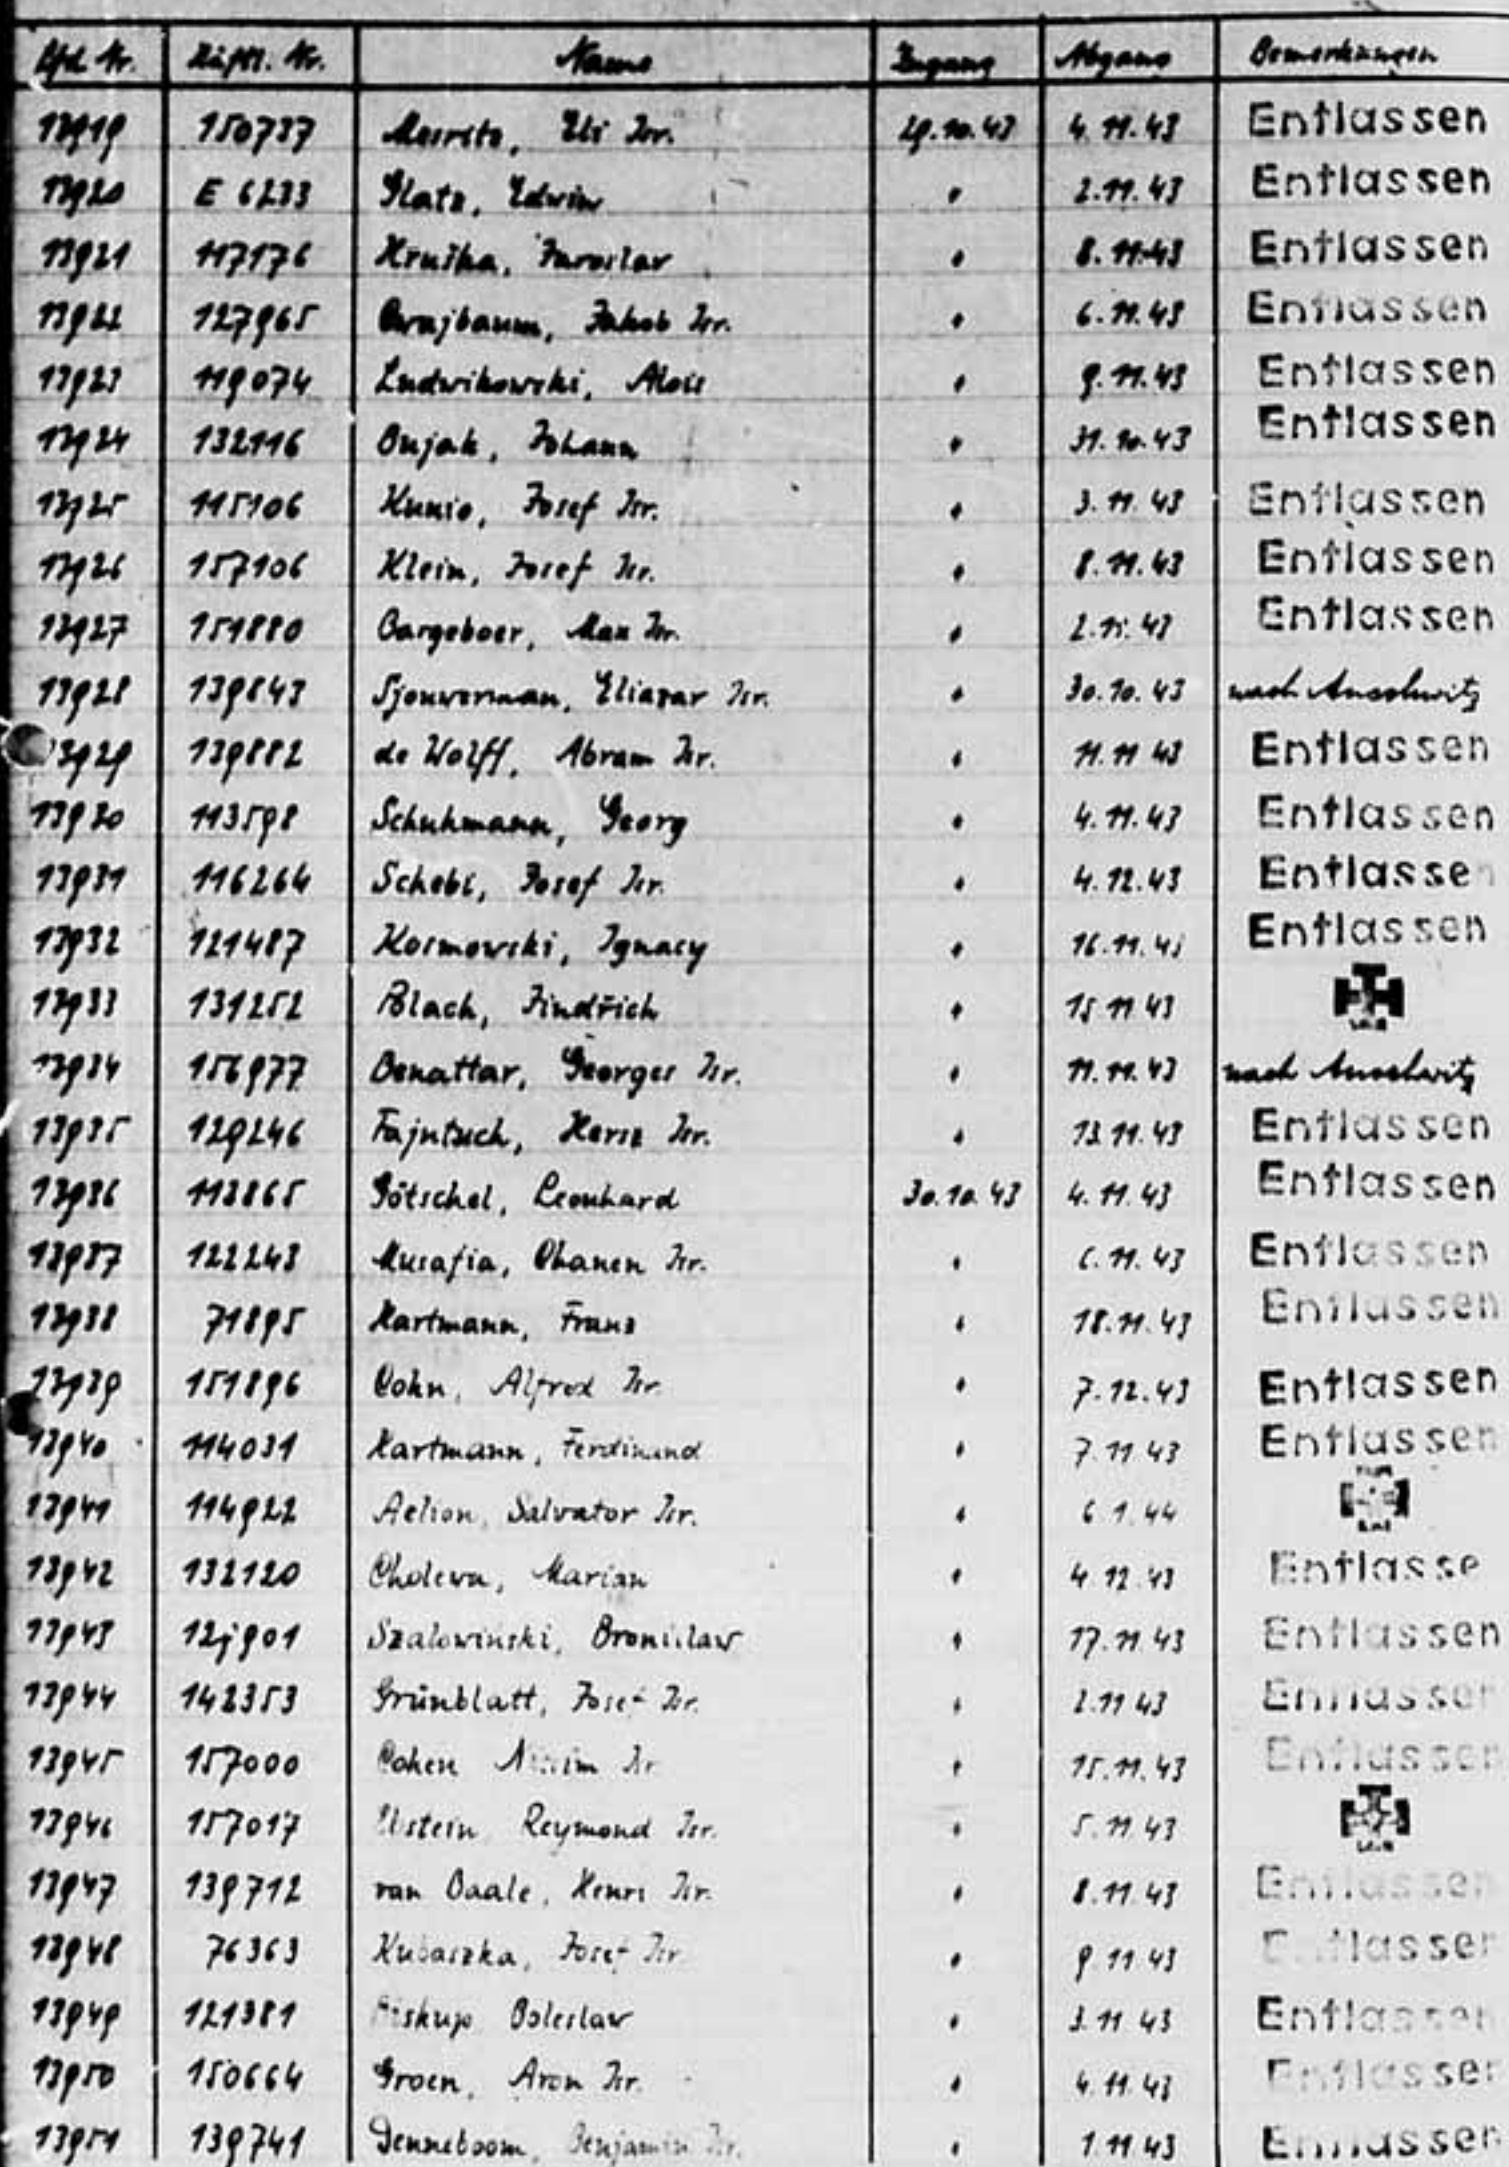 Lfd. Nr. Häftl. Nr. Name Zugang Abgang Bemerkungen
13919 150737 Meyritz, Eli Isr. 29.10.43 4.11.43 Entlassen
13920 E 6233 Glatz, Edwin " 2.11.43 Entlassen
13921 117176 Hruška, Jaroslav " 8.11.43 Entlassen
13922 127965 Cwajbaum, Jakob Isr. " 6.11.43 Entlassen
13923 119074 Ludwikowski, Alois " 9.11.43 Entlassen
13924 132116 Bujak, Johann " 31.10.43 Entlassen
13925 115106 Kunio, Josef Isr. " 3.11.43 Entlassen
13926 157106 Klein, Josef Isr. " 8.11.43 Entlassen
13927 151880 Bargeboer, Max Isr. " 2.11.43 Entlassen
13928 139843 Sjouwerman, Eliazar Isr. " 30.10.43 nach Auschwitz
13929 139882 de Wolff, Abram Isr. " 11.11.43 Entlassen
13930 113598 Schuhmann, Georg " 4.11.43 Entlassen
13931 116264 Schebi, Josef Isr. " 4.12.43 Entlassen
13932 121487 Kosmowski, Ignacy " 16.11.43 Entlassen
13933 131252 Blach, Jindřich " 15.11.43
13934 156977 Benattar, Georges Isr. " 11.11.43 nach Auschwitz
13935 129246 Fajntuch, Hersz Isr. " 13.11.43 Entlassen
13936 113865 Götschel, Leonhard 30.10.43 4.11.43 Entlassen
13937 122243 Musafia, Chanen Isr. " 6.11.43 Entlassen
13938 71895 Hartmann, Franz " 18.11.43 Entlassen
13939 151896 Cohn, Alfred Isr. " 7.12.43 Entlassen
13940 114031 Hartmann, Ferdinand " 7.11.43 Entlassen
13941 114922 Aelion, Salvator Isr. " 6.1.44
13942 132120 Cholewa, Marian " 4.12.43 Entlasse
13943 12j901 Szalowinski, Bronislaw " 17.11.43 Entlassen
13944 142353 Grünblatt, Josef Isr. " 2.11.43 Entlassen
13945 157000 Cohen Isr. " 15.11.43 Entlassen
13946 157017 Reymond Isr. " 5.11.43
13947 139712 van Baale, Henri Isr. " 8.11.43 Entlassen
13948 76363 Kubaszka, Josef Isr. " 9.11.43 Entlassen
13949 121381 Biskup Boleslaw " 3.11.43 Entlassen
13950 150664 Groen, Aron Isr. " 4.11.43 Entlassen
13951 139741 Denneboom, Benjamin Isr. " 1.11.43 Entlassen